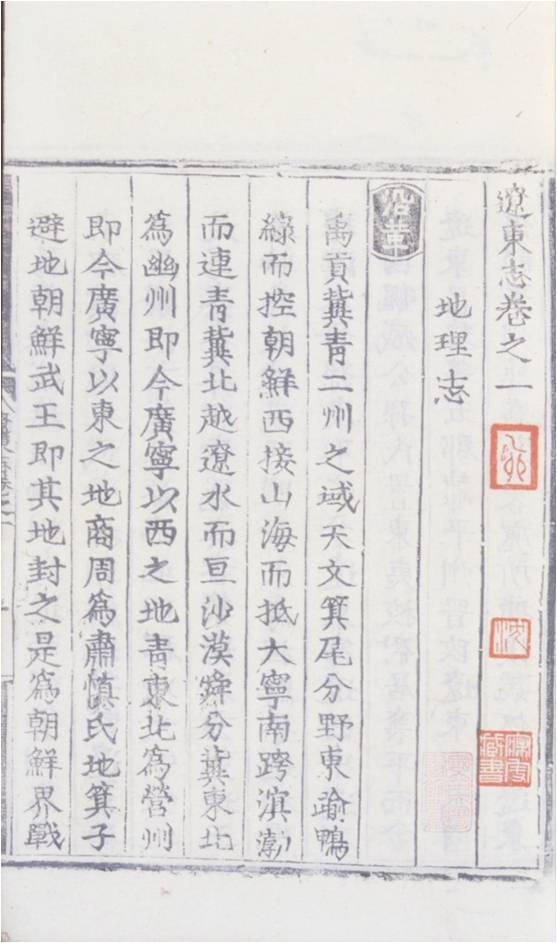 遼東志卷之一
地理志
沿革
禹貢冀青二州之域天文箕尾分野東踰鴨
綠而控朝鮮西接山海而抵大寧南跨溟渤
而連青冀北越遼水而亘沙漠舜分冀東北
為幽州即今廣寧以西之地青東北為營州
即今廣寧以東之地商周為肅慎氏地箕子
避地朝鮮武王即其地封之是為朝鮮界戰